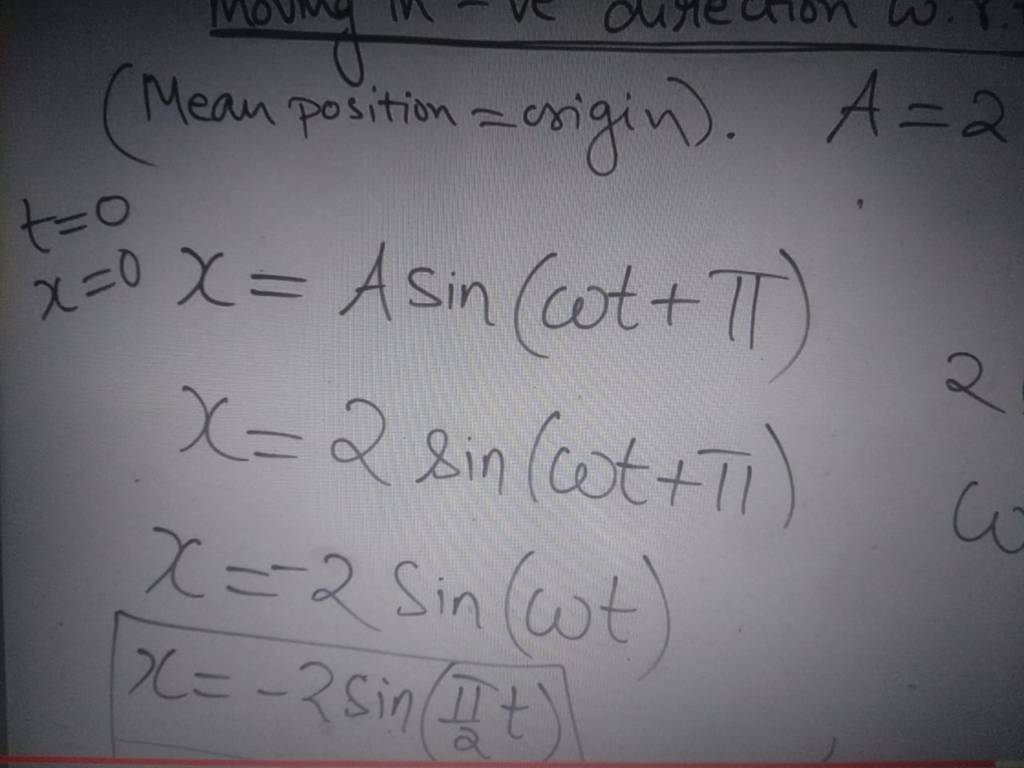 Moving in -ve direction w.r.
(Mean position = origin). A = 2
t=0
x=0 x = A sin (ωt + π)
x = 2 sin (ωt + π)
2
ω
x = -2 sin (ωt)
x = -2 sin (π/2 t)